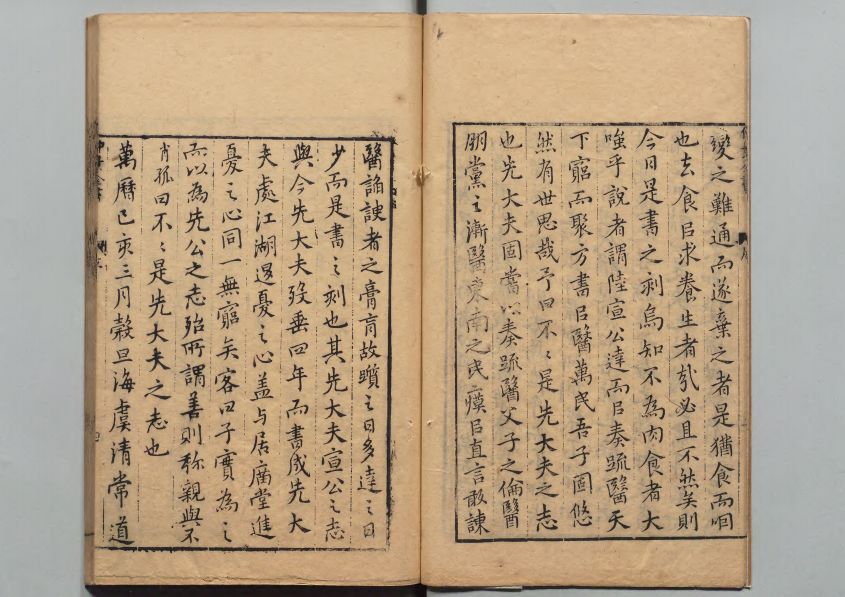 變之難通而遂棄之者是猶食而咽
也去食㠯求養生者㢤必且不然矣則
今日是書之刻烏知不為肉食者大
嗤乎說者謂陸宣公達而㠯奏疏醫天
下窮而聚方書㠯醫萬民吾子固悠
然有世思哉予曰不〻是先大夫之志
也先大夫固嘗以奏疏醫父子之倫醫
朋黨之漸醫東南之民瘼㠯直言敢諫
醫諂諛者之膏肓故躓之日多達之日
少而是書之刻也其先大夫宣公之志
與今先大夫歿垂四年而書成先大
夫處江湖退憂之心盖与居廟堂進
憂之心同一無窮矣客曰子實為之
而以為先公之志殆所謂善則稱親與不
肖孤曰不〻是先大夫之志也
萬曆己亥三月穀旦海虞清常道